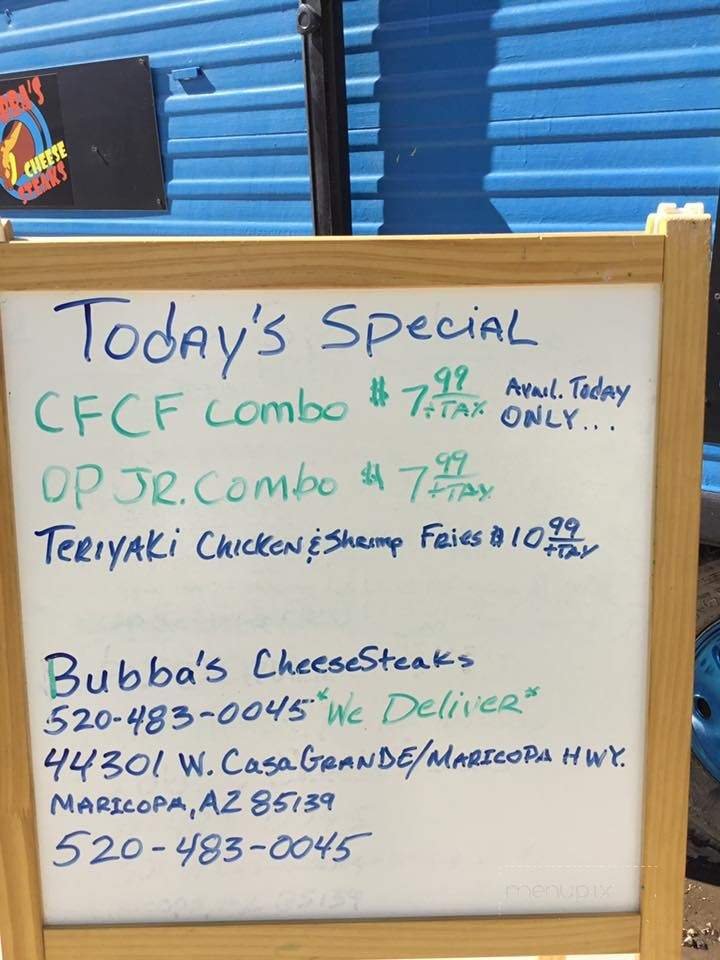 CHEESE
STEAKS
Today's Special
CFCF Combo $7.99 +TAX Avail. Today ONLY...
DP JR. Combo $7.99 +TAY
TERIYAKi CHICKEN & Shrimp FRies $10.99 +TAY
Bubba's CheeseSteaks
520-483-0045 *We Deliver*
44301 W. Casa GRANDE/MARICOPA HWY.
MARICOPA, AZ 85139
520-483-0045
menupix